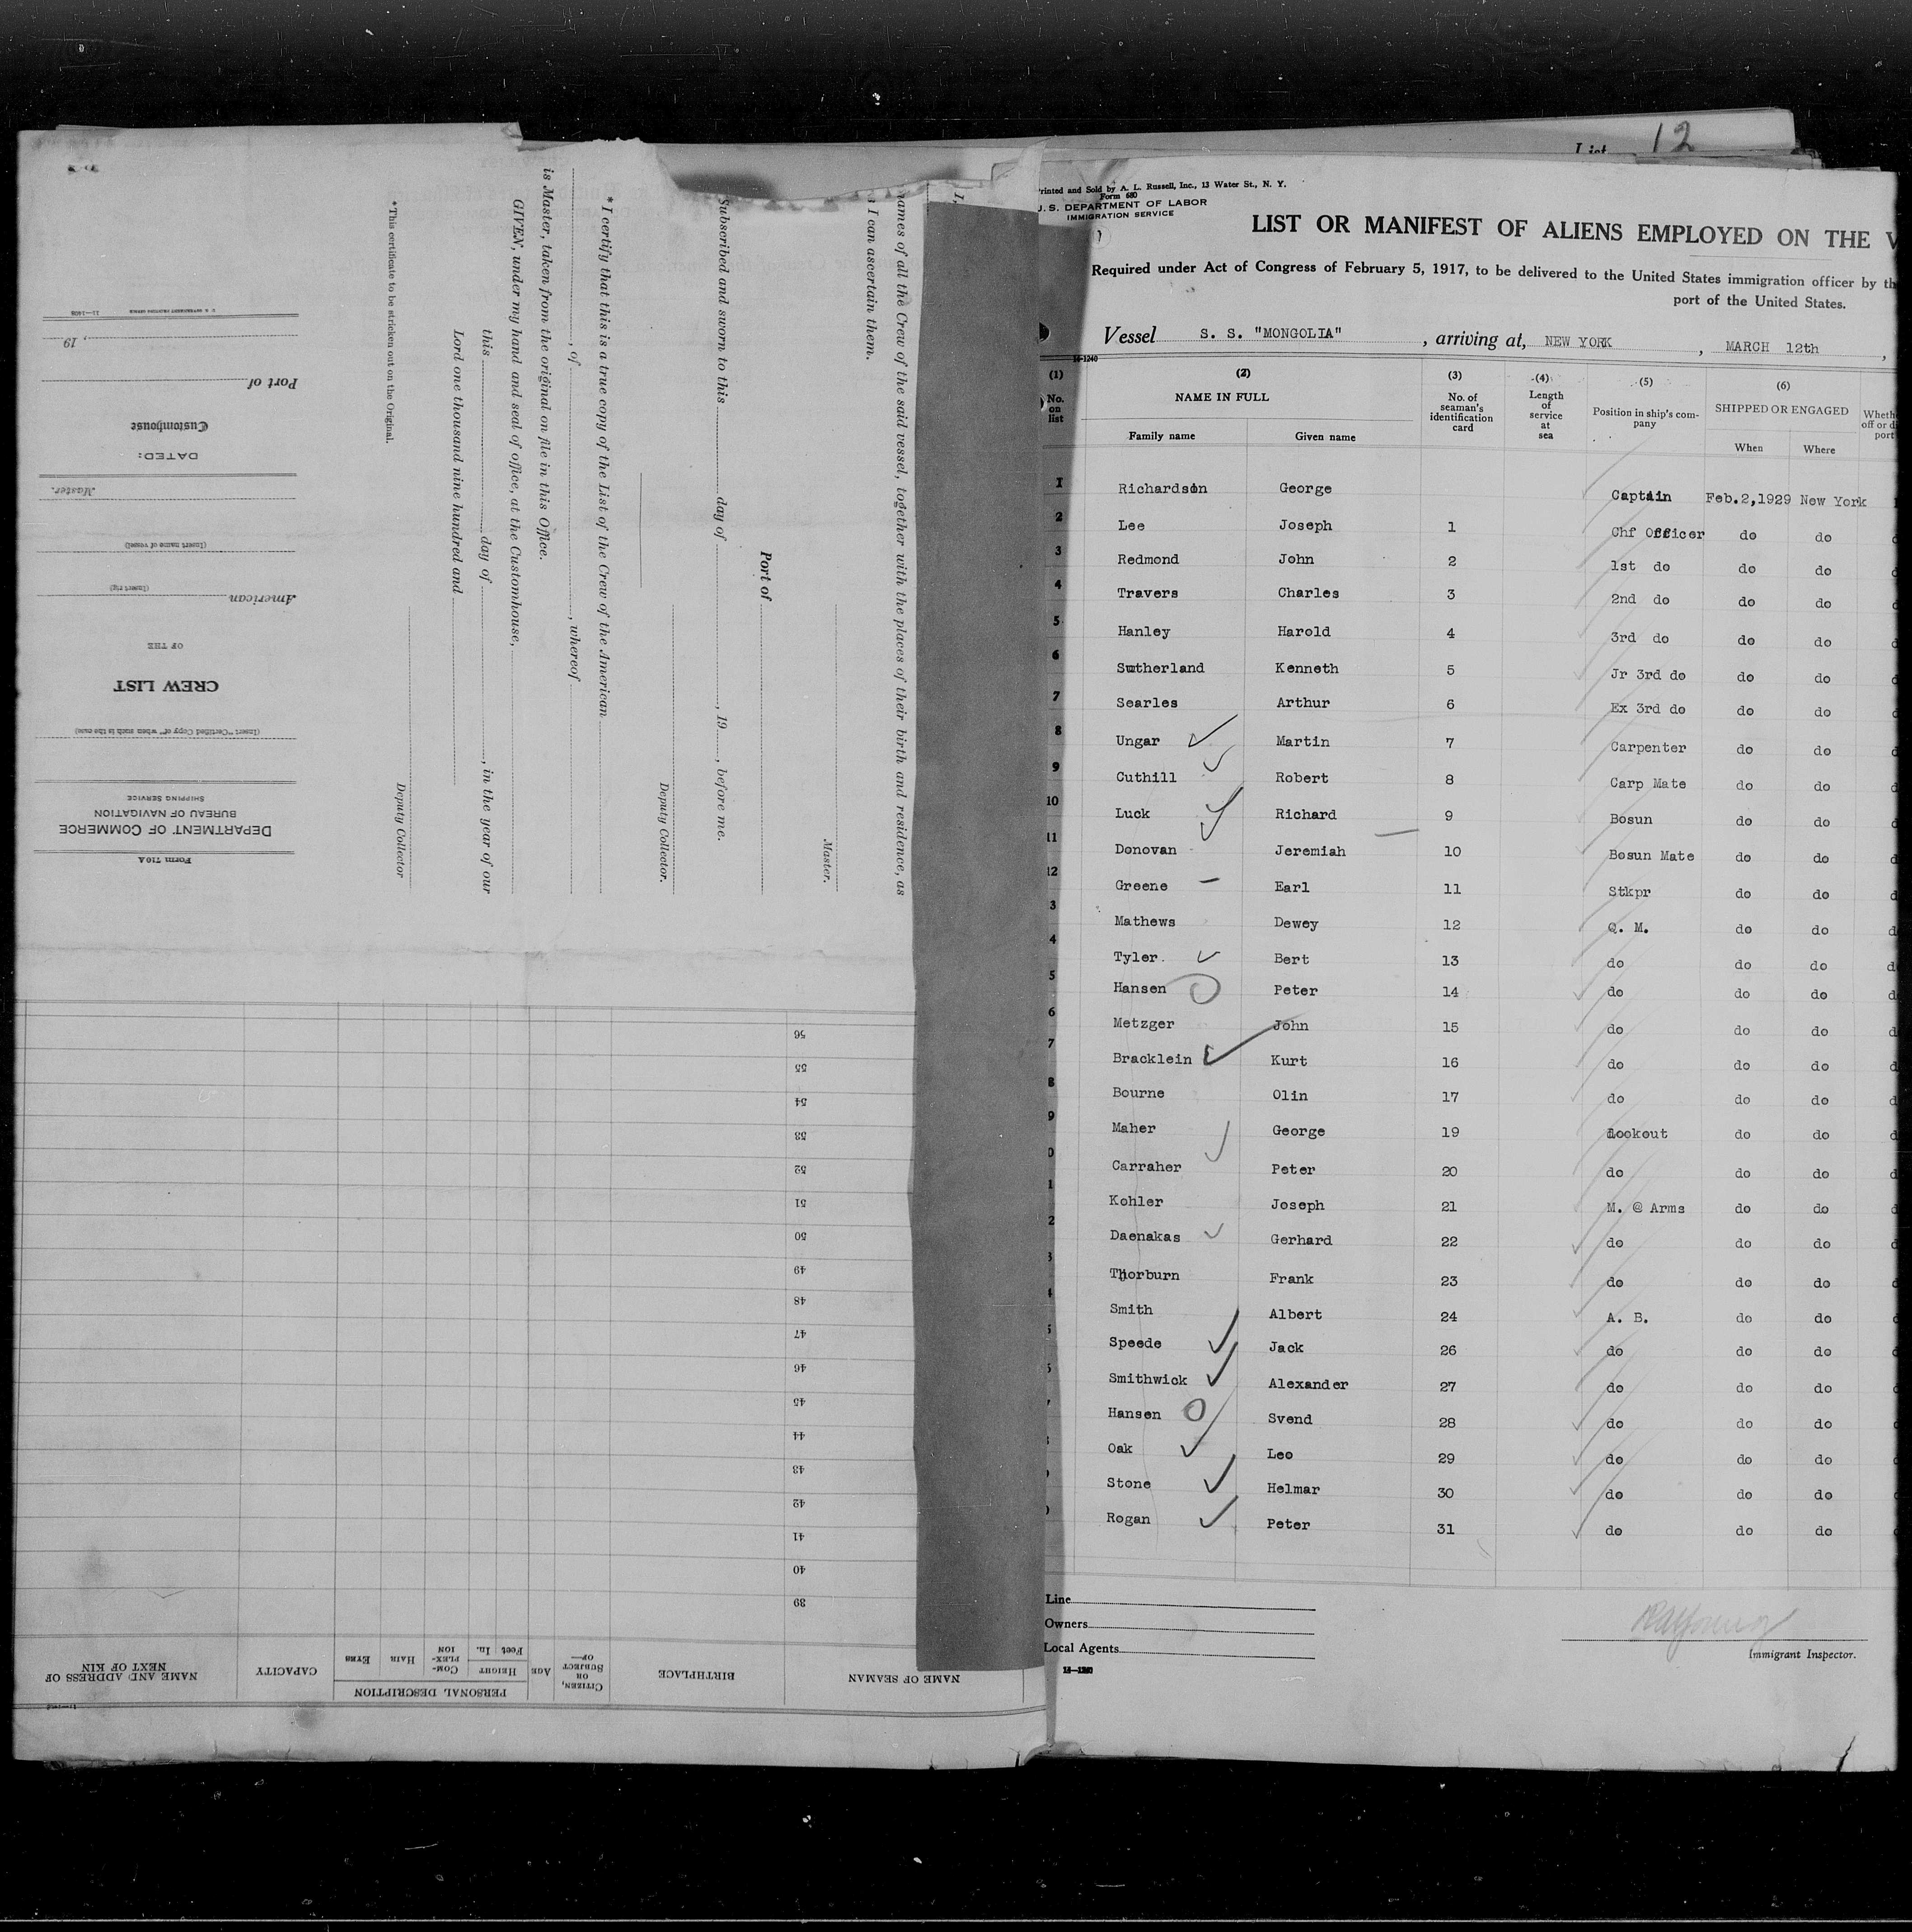 List 12
Printed and Sold by A. L. Russell, Inc., 13 Water St., N. Y.
Form 680
U. S. DEPARTMENT OF LABOR
IMMIGRATION SERVICE
LIST OR MANIFEST OF ALIENS EMPLOYED ON THE V
Required under Act of Congress of February 5, 1917, to be delivered to the United States immigration officer by th
port of the United States.
Vessel S. S. "MONGOLIA", arriving at, NEW YORK, MARCH 12th,
14-1240
(1) (2) (3) (4) (5) (6)
No. on list NAME IN FULL No. of seaman's identification card Length of service at sea Position in ship's company SHIPPED OR ENGAGED
Family name Given name When Where
1 Richardson George Captain Feb.2,1929 New York
2 Lee Joseph 1 Chf Officer do do
3 Redmond John 2 1st do do do
4 Travers Charles 3 2nd do do do
5 Hanley Harold 4 3rd do do do
6 Sutherland Kenneth 5 Jr 3rd do do do
7 Searles Arthur 6 Ex 3rd do do do
8 Ungar Martin 7 Carpenter do do
9 Cuthill Robert 8 Carp Mate do do
10 Luck Richard 9 Bosun do do
11 Donovan Jeremiah 10 Bosun Mate do do
12 Greene Earl 11 Stkpr do do
3 Mathews Dewey 12 Q. M. do do
4 Tyler. Bert 13 do do do
5 Hansen Peter 14 do do do
6 Metzger John 15 do do do
7 Bracklein Kurt 16 do do do
8 Bourne Olin 17 do do do
9 Maher George 19 Lookout do do
0 Carraher Peter 20 do do do
1 Kohler Joseph 21 M. @ Arms do do
2 Daenakas Gerhard 22 do do do
3 Thorburn Frank 23 do do do
4 Smith Albert 24 A. B. do do
5 Speede Jack 26 do do do
Smithwick Alexander 27 do do do
Hansen Svend 28 do do do
Oak Leo 29 do do do
Stone Helmar 30 do do do
Rogan Peter 31 do do do
Line
Owners
Local Agents
Immigrant Inspector.
names of all the Crew of the said vessel, together with the places of their birth and residence, as
I can ascertain them.
Master.
Port of
Subscribed and sworn to this day of , 19 , before me.
Deputy Collector.
* I certify that this is a true copy of the List of the Crew of the American
, of , whereof
is Master, taken from the original on file in this Office.
GIVEN, under my hand and seal of office, at the Customhouse,
this day of , in the year of our
Lord one thousand nine hundred and
Deputy Collector
*This certificate to be stricken out on the Original.
Form 710A
DEPARTMENT OF COMMERCE
BUREAU OF NAVIGATION
SHIPPING SERVICE
(Insert "Certified Copy of" when such is the case)
CREW LIST
OF THE
American
(Insert rig)
(Insert name of vessel)
Master.
DATED:
Customhouse
Port of
, 19
11-1408 U. S. GOVERNMENT PRINTING OFFICE
NAME OF SEAMAN BIRTHPLACE CITIZEN, OR SUBJECT OF— AGE PERSONAL DESCRIPTION CAPACITY NAME AND ADDRESS OF NEXT OF KIN
HEIGHT Feet In. COMPLEXION HAIR EYES
39
40
41
42
43
44
45
46
47
48
49
50
51
52
53
54
55
56